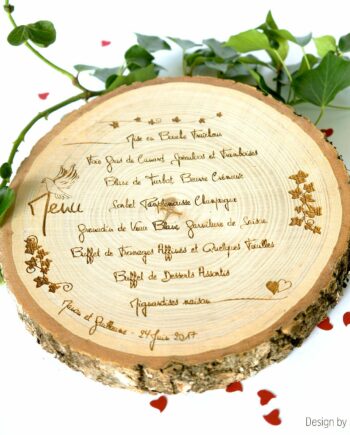 Mise en Bouche Fraîcheur
Foie Gras de Canard, Spéculoos et Framboises
Blanc de Turbot, Beurre Crémeux
Menu
Sorbet Champagne
Grenadin de Veau Garniture de Saison
Buffet de Fromages Affinés et Quelques Feuilles
Buffet de Desserts Assortis
Mignardises maison
et Guillaume - 24 Juin 2017
Design by